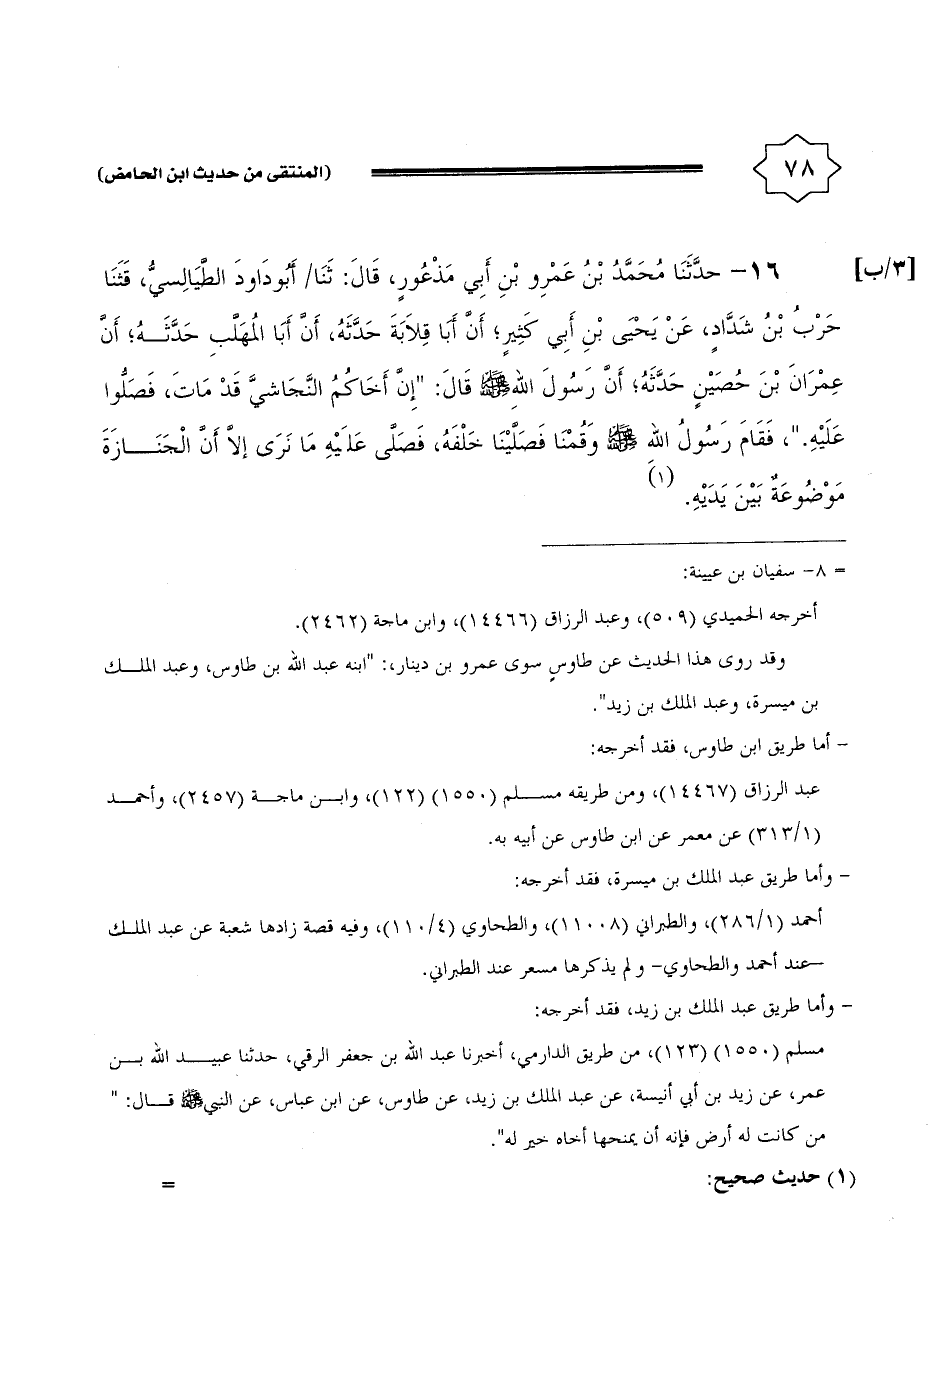 ٧٨ (المنتقى من حديث ابن الحامض)
[٣/ب] ١٦- حدَّثَنَا مُحَمَّدُ بْنُ عَمْرِو بْنِ أَبِي مَذْعُورٍ، قَالَ: ثَنَا/ أَبُودَاودَ الطَّيَالِسيُّ، قَثَنَا
حَرْبُ بْنُ شَدَّادٍ، عَنْ يَحْيَى بْنِ أَبِي كَثِيرٍ؛ أَنَّ أَبَا قِلاَبَةَ حَدَّثَهُ، أَنَّ أَبَا المُهَلَّبِ حَدَّثَــهُ؛ أَنَّ
عِمْرَانَ بْنَ حُصَيْنٍ حَدَّثَهُ؛ أَنَّ رَسُولَ اللهِ ﷺ قَالَ: "إِنَّ أَخَاكُم النَّجَاشيَّ قَدْ مَاتَ، فَصَلُّوا
عَلَيْهِ."، فَقَامَ رَسُولُ اللهِ ﷺ وَقُمْنَا فَصَلَّيْنَا خَلْفَهُ، فَصَلَّى عَلَيْهِ مَا نَرَى إلاَّ أَنَّ الْجَنَــازَةَ
مَوْضُوعَةٌ بَيْنَ يَدَيْهِ. (١)
= ٨- سفيان بن عيينة:
أخرجه الحميدي (٥٠٩)، وعبد الرزاق (١٤٤٦٦)، وابن ماجة (٢٤٦٢).
وقد روى هذا الحديث عن طاوسٍ سوى عمرو بن دينار،: "ابنه عبد الله بن طاوس، وعبد الملــك
بن ميسرة، وعبد الملك بن زيد".
- أما طريق ابن طاوس، فقد أخرجه:
عبد الرزاق (١٤٤٦٧)، ومن طريقه مســلم (١٥٥٠) (١٢٢)، وابــن ماجــة (٢٤٥٧)، وأحمــد
(٣١٣/١) عن معمر عن ابن طاوس عن أبيه به.
- وأما طريق عبد الملك بن ميسرة، فقد أخرجه:
أحمد (٢٨٦/١)، والطبراني (١١٠٠٨)، والطحاوي (١١٠/٤)، وفيه قصة زادها شعبة عن عبد الملــك
–عند أحمد والطحاوي– و لم يذكرها مسعر عند الطبراني.
- وأما طريق عبد الملك بن زيد، فقد أخرجه:
مسلم (١٥٥٠) (١٢٣)، من طريق الدارمي، أخبرنا عبد الله بن جعفر الرقي، حدثنا عبيــد الله بــن
عمر، عن زيد بن أبي أنيسة، عن عبد الملك بن زيد، عن طاوس، عن ابن عباس، عن النبي ﷺ قــال: "
من كانت له أرض فإنه أن يمنحها أخاه خير له".
(١) حديث صحيح: =